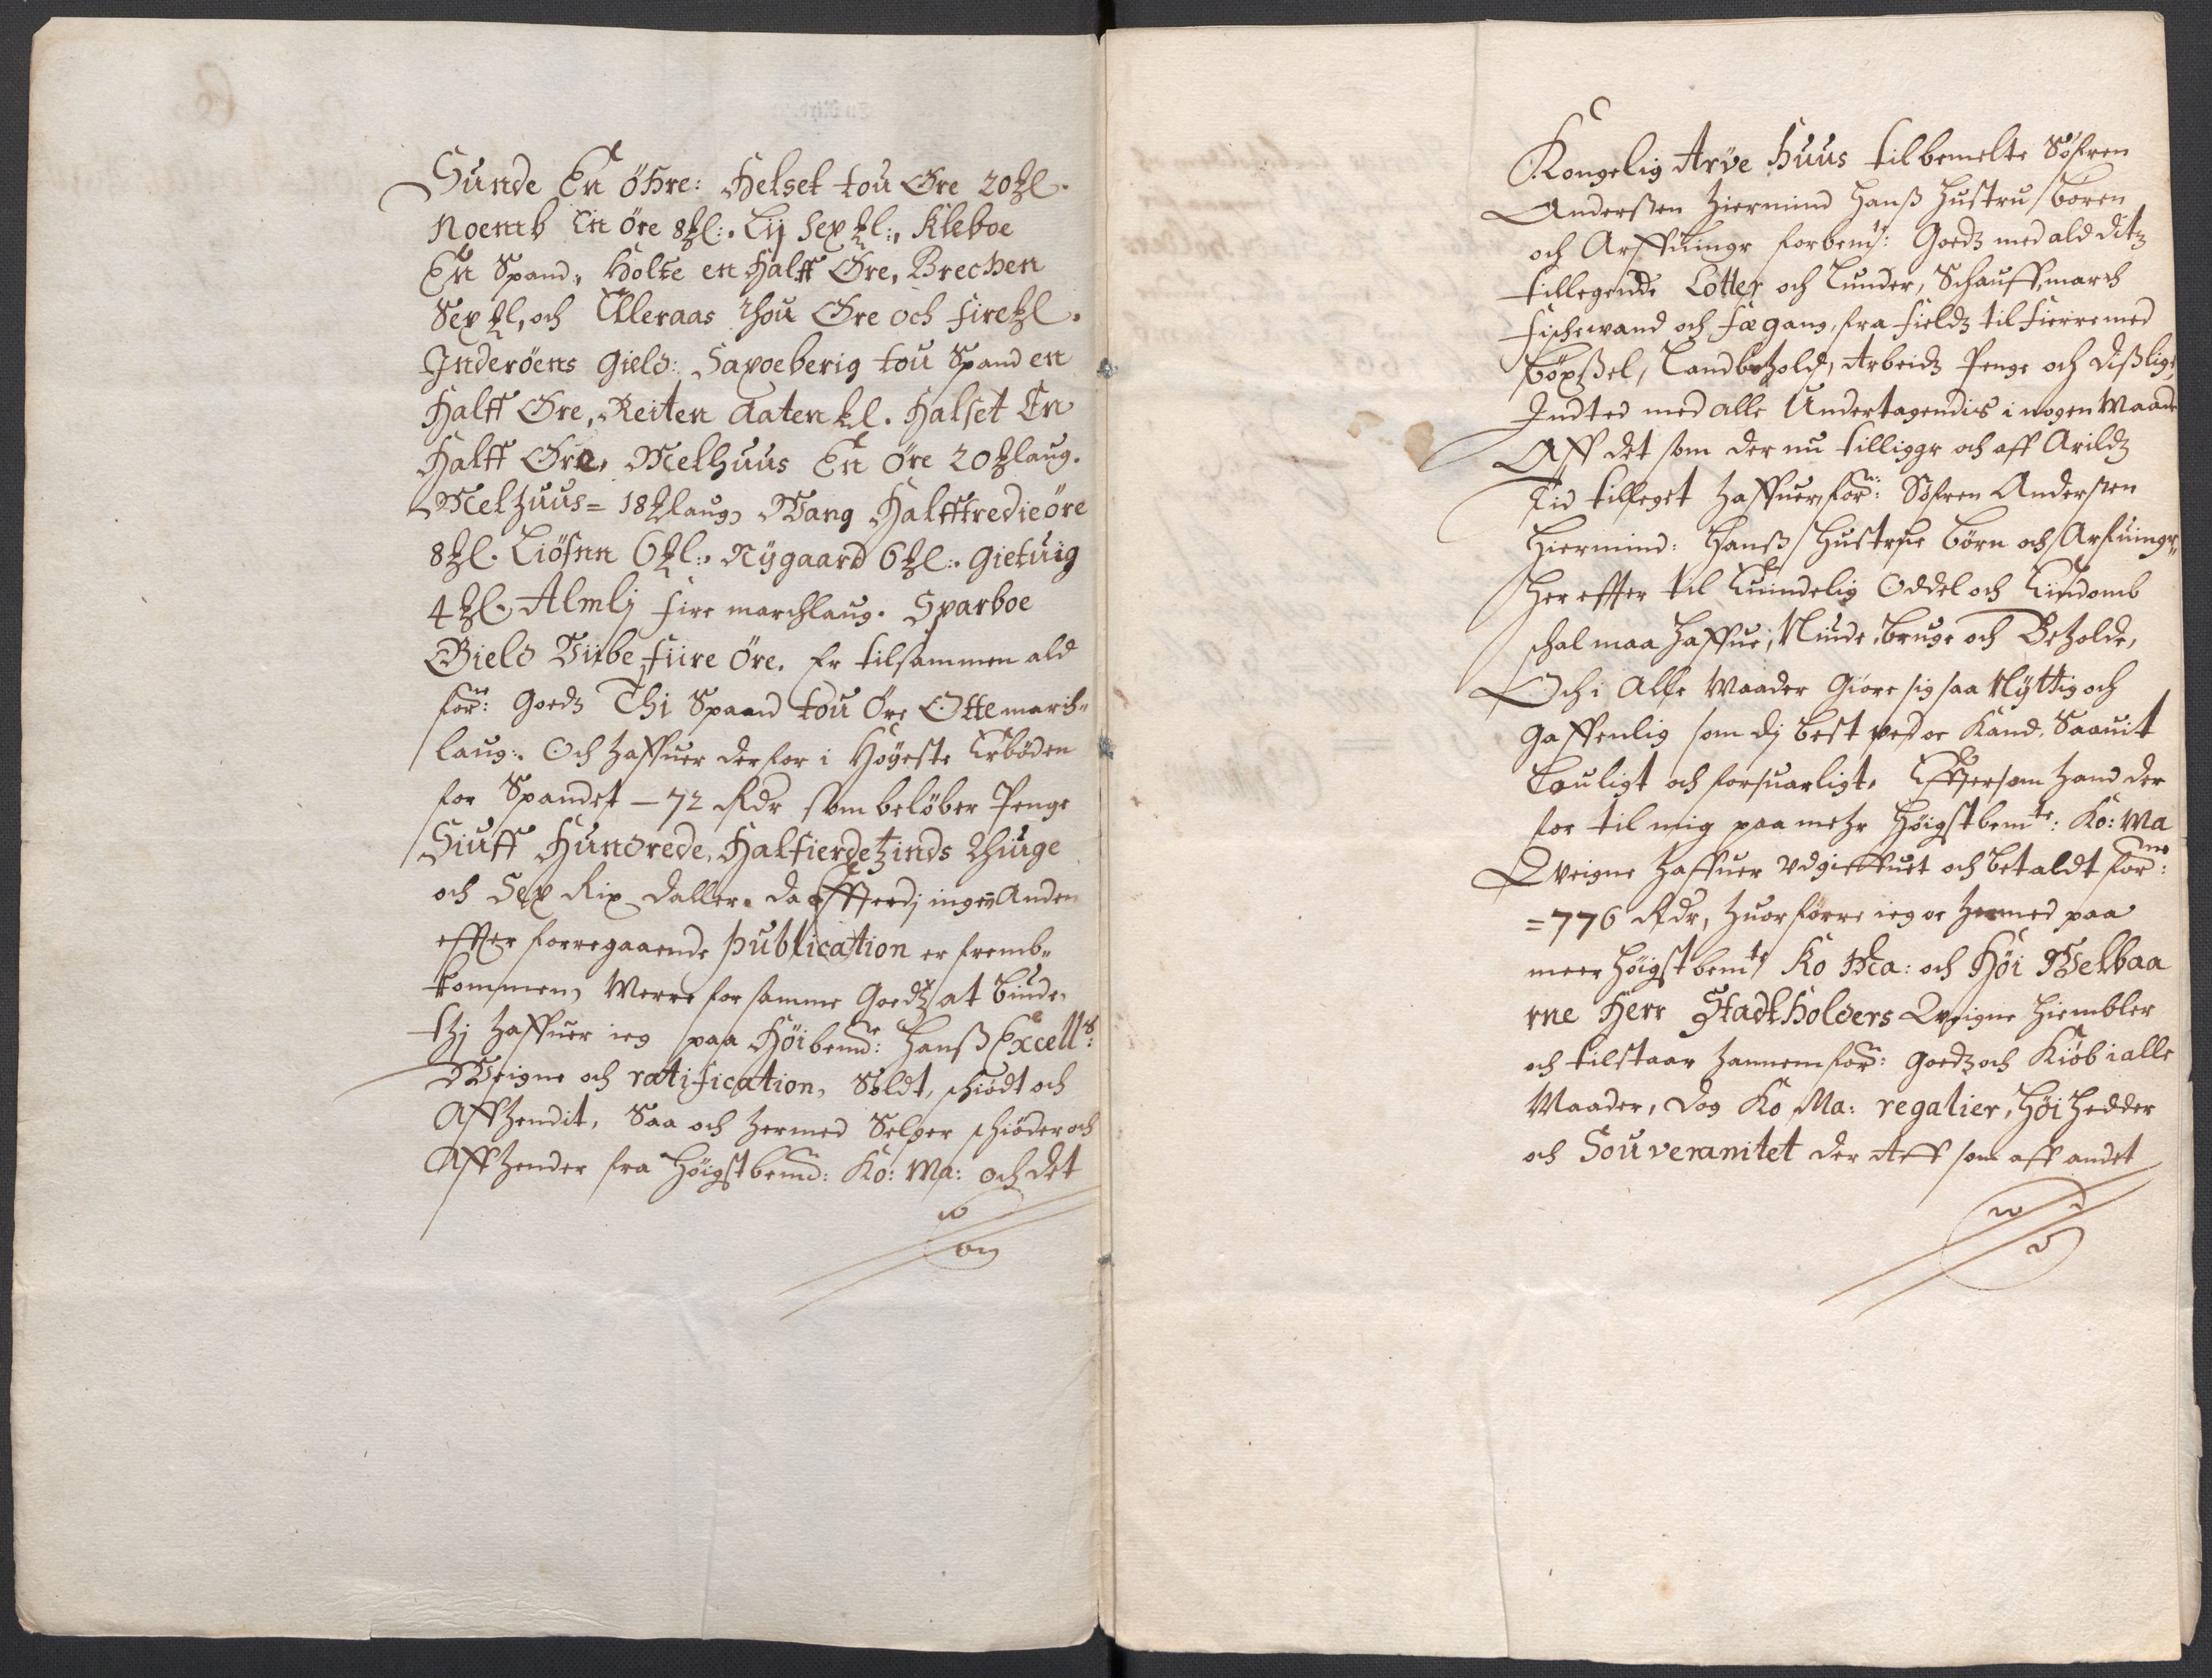 Sunde En öhre: Helset tou Øre 20 ꝳl.
Noemb En öre 8 ꝳl:. Lij Sex ꝳl:, Kleboe
En Spand, Holte en Halff Øre, Brechen
Sex ꝳl, och Ulleraas thou Øre och fire ꝳl.
Inderöens Gield: Saxoeberig tou Spand en
Halff Øre, Reiten Aaten ꝳl. Halset En
Halff Øre, Melhuus En öre 20 ꝳlaug.
Melhuus = 18 ꝳlaug, Wang Halfftredie öre
8 ꝳl. Liösnn 6 ꝳl:, Nÿgaard 6 ꝳl:. Gietuig
4 ꝳl. Almlj fire marchlaug. Sparboe
Gield Viibe fiire öre. Er tilsammen ald
forne: Goedz Thi Spaand tou Øre Otte march"
laug:. Och haffuer derfor i Högeste Erböden
for Spandet – 72 Rdr som belöber Penge
Siuff Hundrede, Halfierdetzinds thiuge
och Sex Rix daller. da effterdj ingen Anden
effter forregaaende publication er fremb"
kommen, Merre for samme Goedz at biude,
thj haffuer ieg paa Höibemde: Hanß Excells:
Weigne och ratification, Soldt, schiödt och
Affhendit, Saa och hermed Selger schiöder och
Affhender fra Höigstbemd: Ko: Ma: och det
Kongelig Arve Huus til bemelte Söfren
Anderßen hiermind Hanß Hustru, börn
och Arffuinger forbem: Goedz med ald ditz
tillegende Lotter och Lunder, Schouff, march
fischevand och fægang, fra fieldz til fierre med
böxßel, Landbohold, Arbeidz Penge och dißlige,
Indted med alle Undertagendis i nogen Maade
Aff det som der nu tilligger och aff Arildz
Tid tilleget haffuer, forne: Söfren Anderßen
Hiermind: Hanß Hustrue börn och Arfuinger"
her effter til Euindelig Oddel och Eindomb
schal maa haffue, Niude, bruge och Beholde,
Och i Alle Maader Giöre sig saa Nÿttig och
Gaffenlig som dj best ved oc Kand. Saauit
Louligt och forsuarligt. Efftersom hand der
for til mig paa mehr Höigstbemte: Ko: Ma
Weigne haffuer udgieffuet och betaldt forne:
= 776 Rdr, huor förre ieg oc hermed paa
meer höigstbemte Ko Ma: och Höi Welbaa
rne Herr Stadtholders Weigne hiembler
och tilstaar hannem for: Goedz och Kiöb i alle
Maader, dog Ko Ma: regalier, Höi Hedder
och Souveranitet der Aff som aff andet